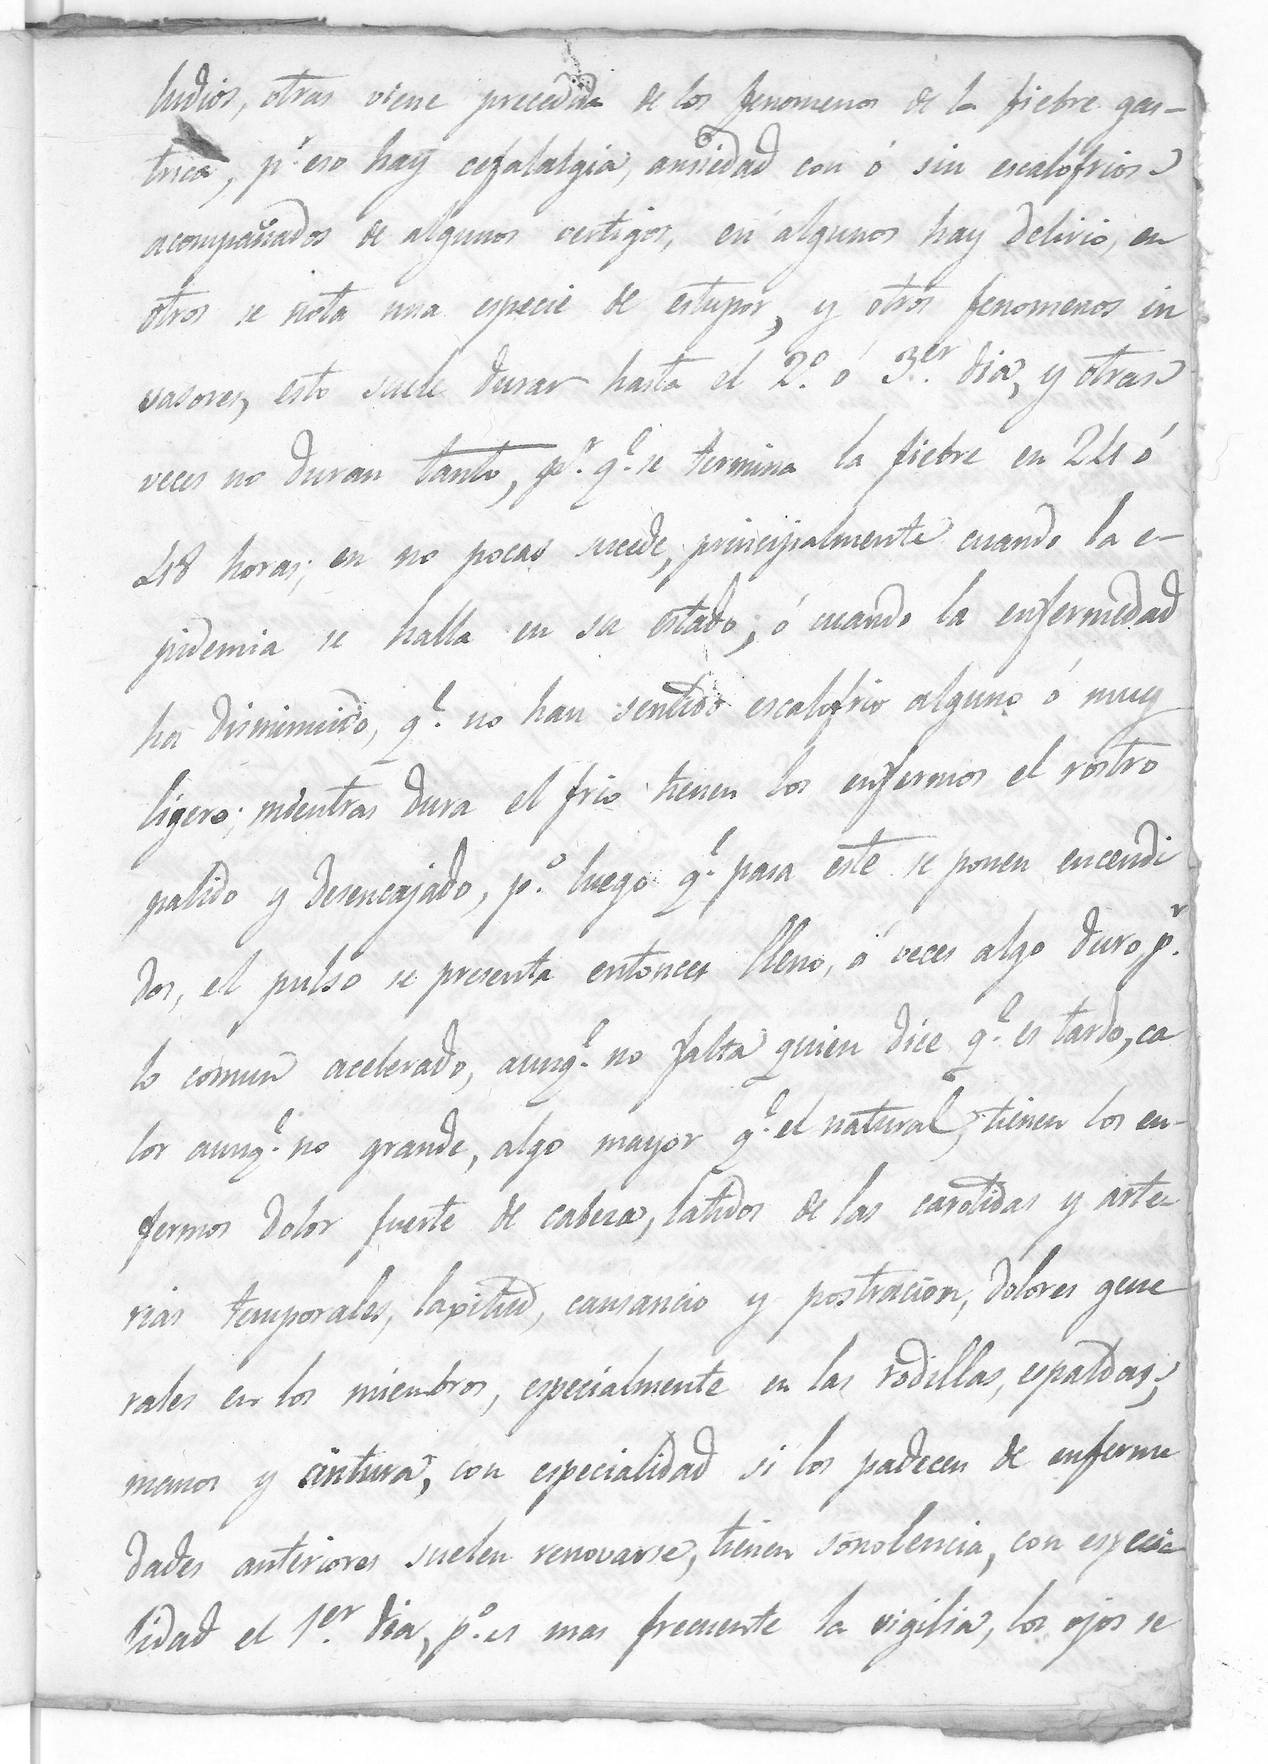 ludios, otras viene precedida de los fenomenos de la fiebre gas-
trica, pr. eso hay cefalalgia, ansiedad con ó sin escalofrios
acompañados de algunos vertigos, en algunos hay delirio, en
otros se nota una especie de estupor, y otros fenomenos in
vasores, esto suele durar hasta el 2º. ó 3er. dia, y otras
veces no duran tanto, pr. qe. se termina la fiebre en 24 ó
48 horas; en no pocas sucede, principalmente cuando la e-
pidemia se halla en su estado, ó cuando la enfermedad
ha disminuido, qe. no han sentido escalofrio alguno ó muy
ligero; mientras dura el frio tienen los enfermos el rostro
palido y desencajado, po. luego qe. pasa este se ponen encendi
dos, el pulso se presenta entonces lleno, á veces algo duro, pr.
lo comun acelerado, aunqe. no falta quien dice qe. es tardo, ca
lor aunqe. no grande, algo mayor qe. el natural, tienen los en-
fermos dolor fuerte de cabeza, latidos de las carotidas y arte-
rias temporales, laxitud, cansancio y postracion, dolores gene
rales en los miembros, especialmente en las rodillas, espaldas,
manos y cintura, con especialidad si los padecen de enferme
dades anteriores suelen renovarse, tienen sonolencia, con especia
lidad el 1er. dia, po. es mas frecuente la vigilia, los ojos se